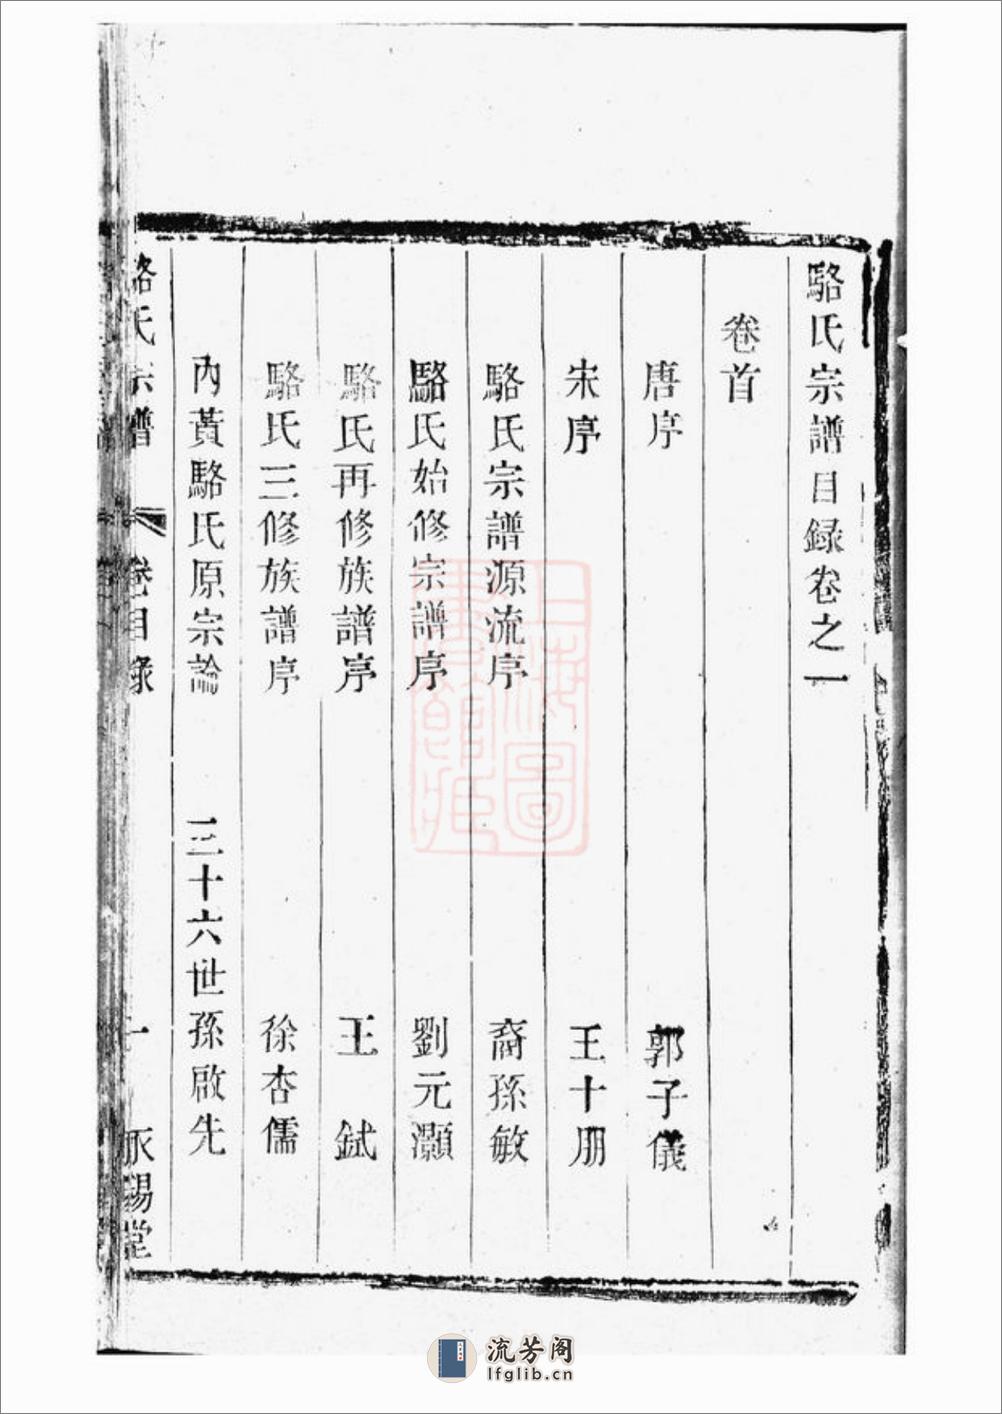 駱氏宗譜目録卷之一
卷首
唐序 郭子儀
宋序 王十朋
駱氏宗譜源流序 裔孫敏
駱氏始修宗譜序 劉元灝
駱氏再修族譜序 王 鉽
駱氏三修族譜序 徐杏儒
內黃駱氏原宗論 三十六世孫啟先
駱氏宗譜 卷目錄 一 錫堂
上海圖書館藏
流芳阁
lfglib.cn